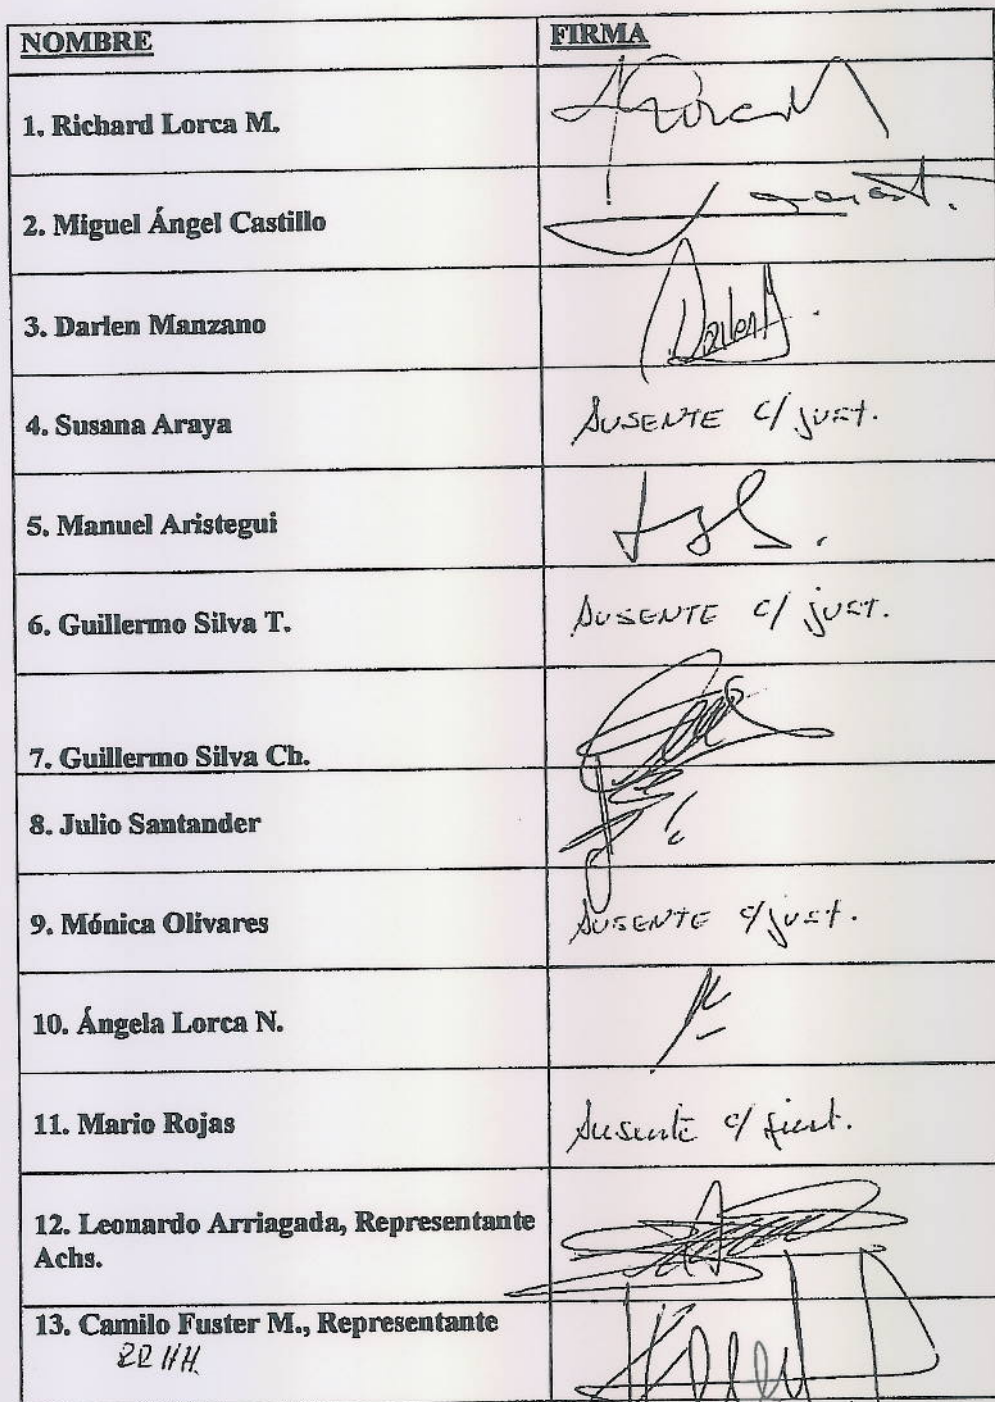 NOMBRE FIRMA
1. Richard Lorca M.
2. Miguel Ángel Castillo
3. Darien Manzano
4. Susana Araya AUSENTE c/ just.
5. Manuel Aristegui
6. Guillermo Silva T. AUSENTE c/ just.
7. Guillermo Silva Ch.
8. Julio Santander
9. Mónica Olivares AUSENTE c/ just.
10. Ángela Lorca N.
11. Mario Rojas Ausente c/ just.
12. Leonardo Arriagada, Representante
Achs.
13. Camilo Fuster M., Representante
RRHH.